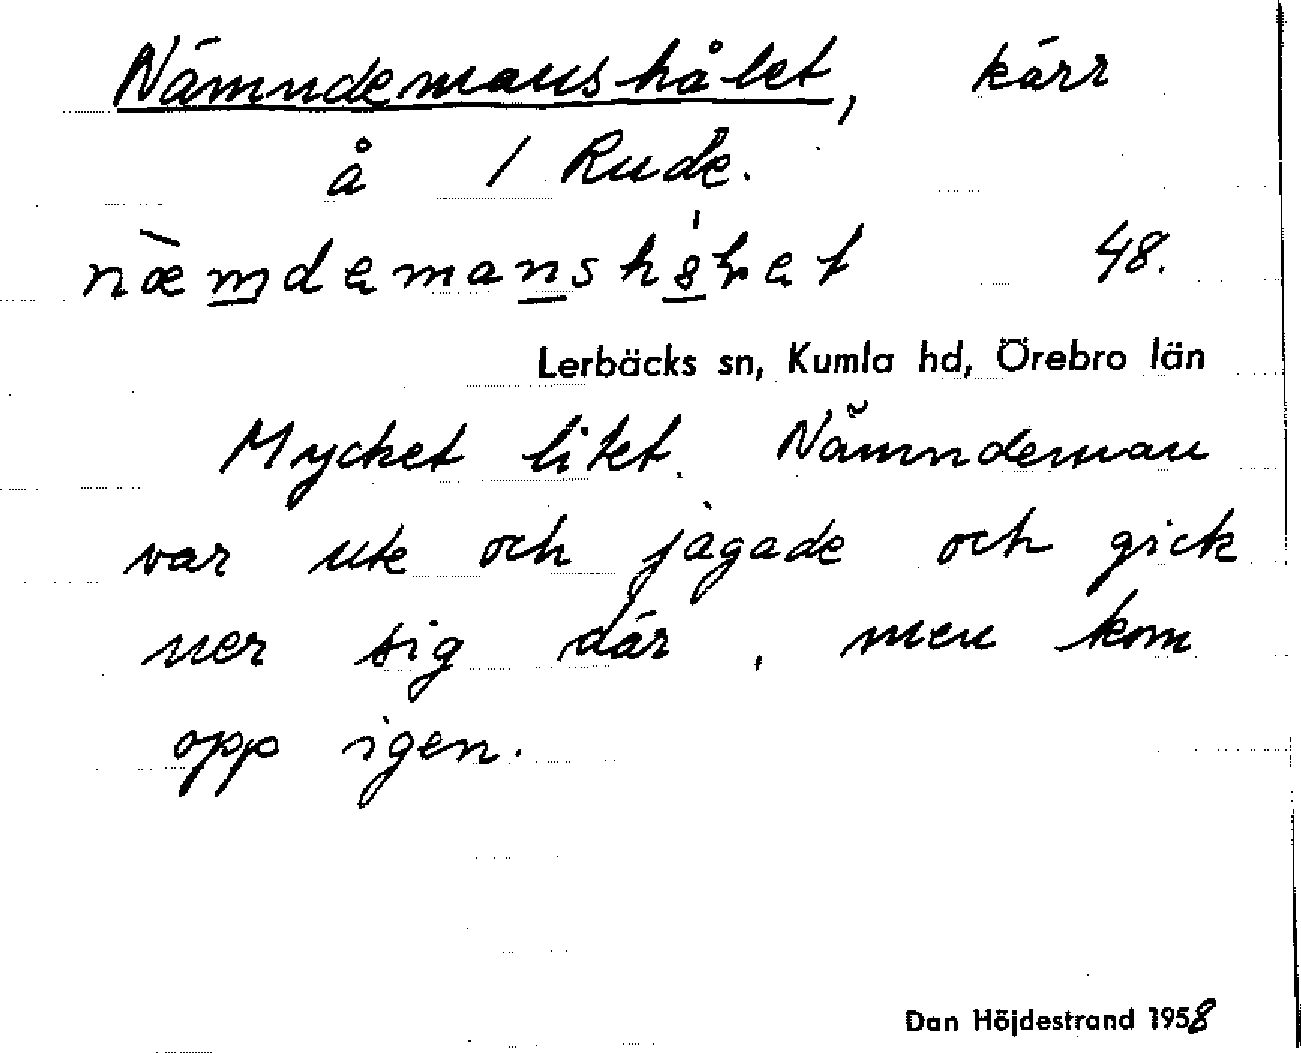 Nämndemanshålet, kärr
å 1 Rude.
næmdemanshålet 48.
Lerbäcks sn, Kumla hd, Örebro län
Mycket litet. Nämndeman
var ute och jagade och gick
ner sig där, men kom
opp igen.
Dan Höjdestrand 1958